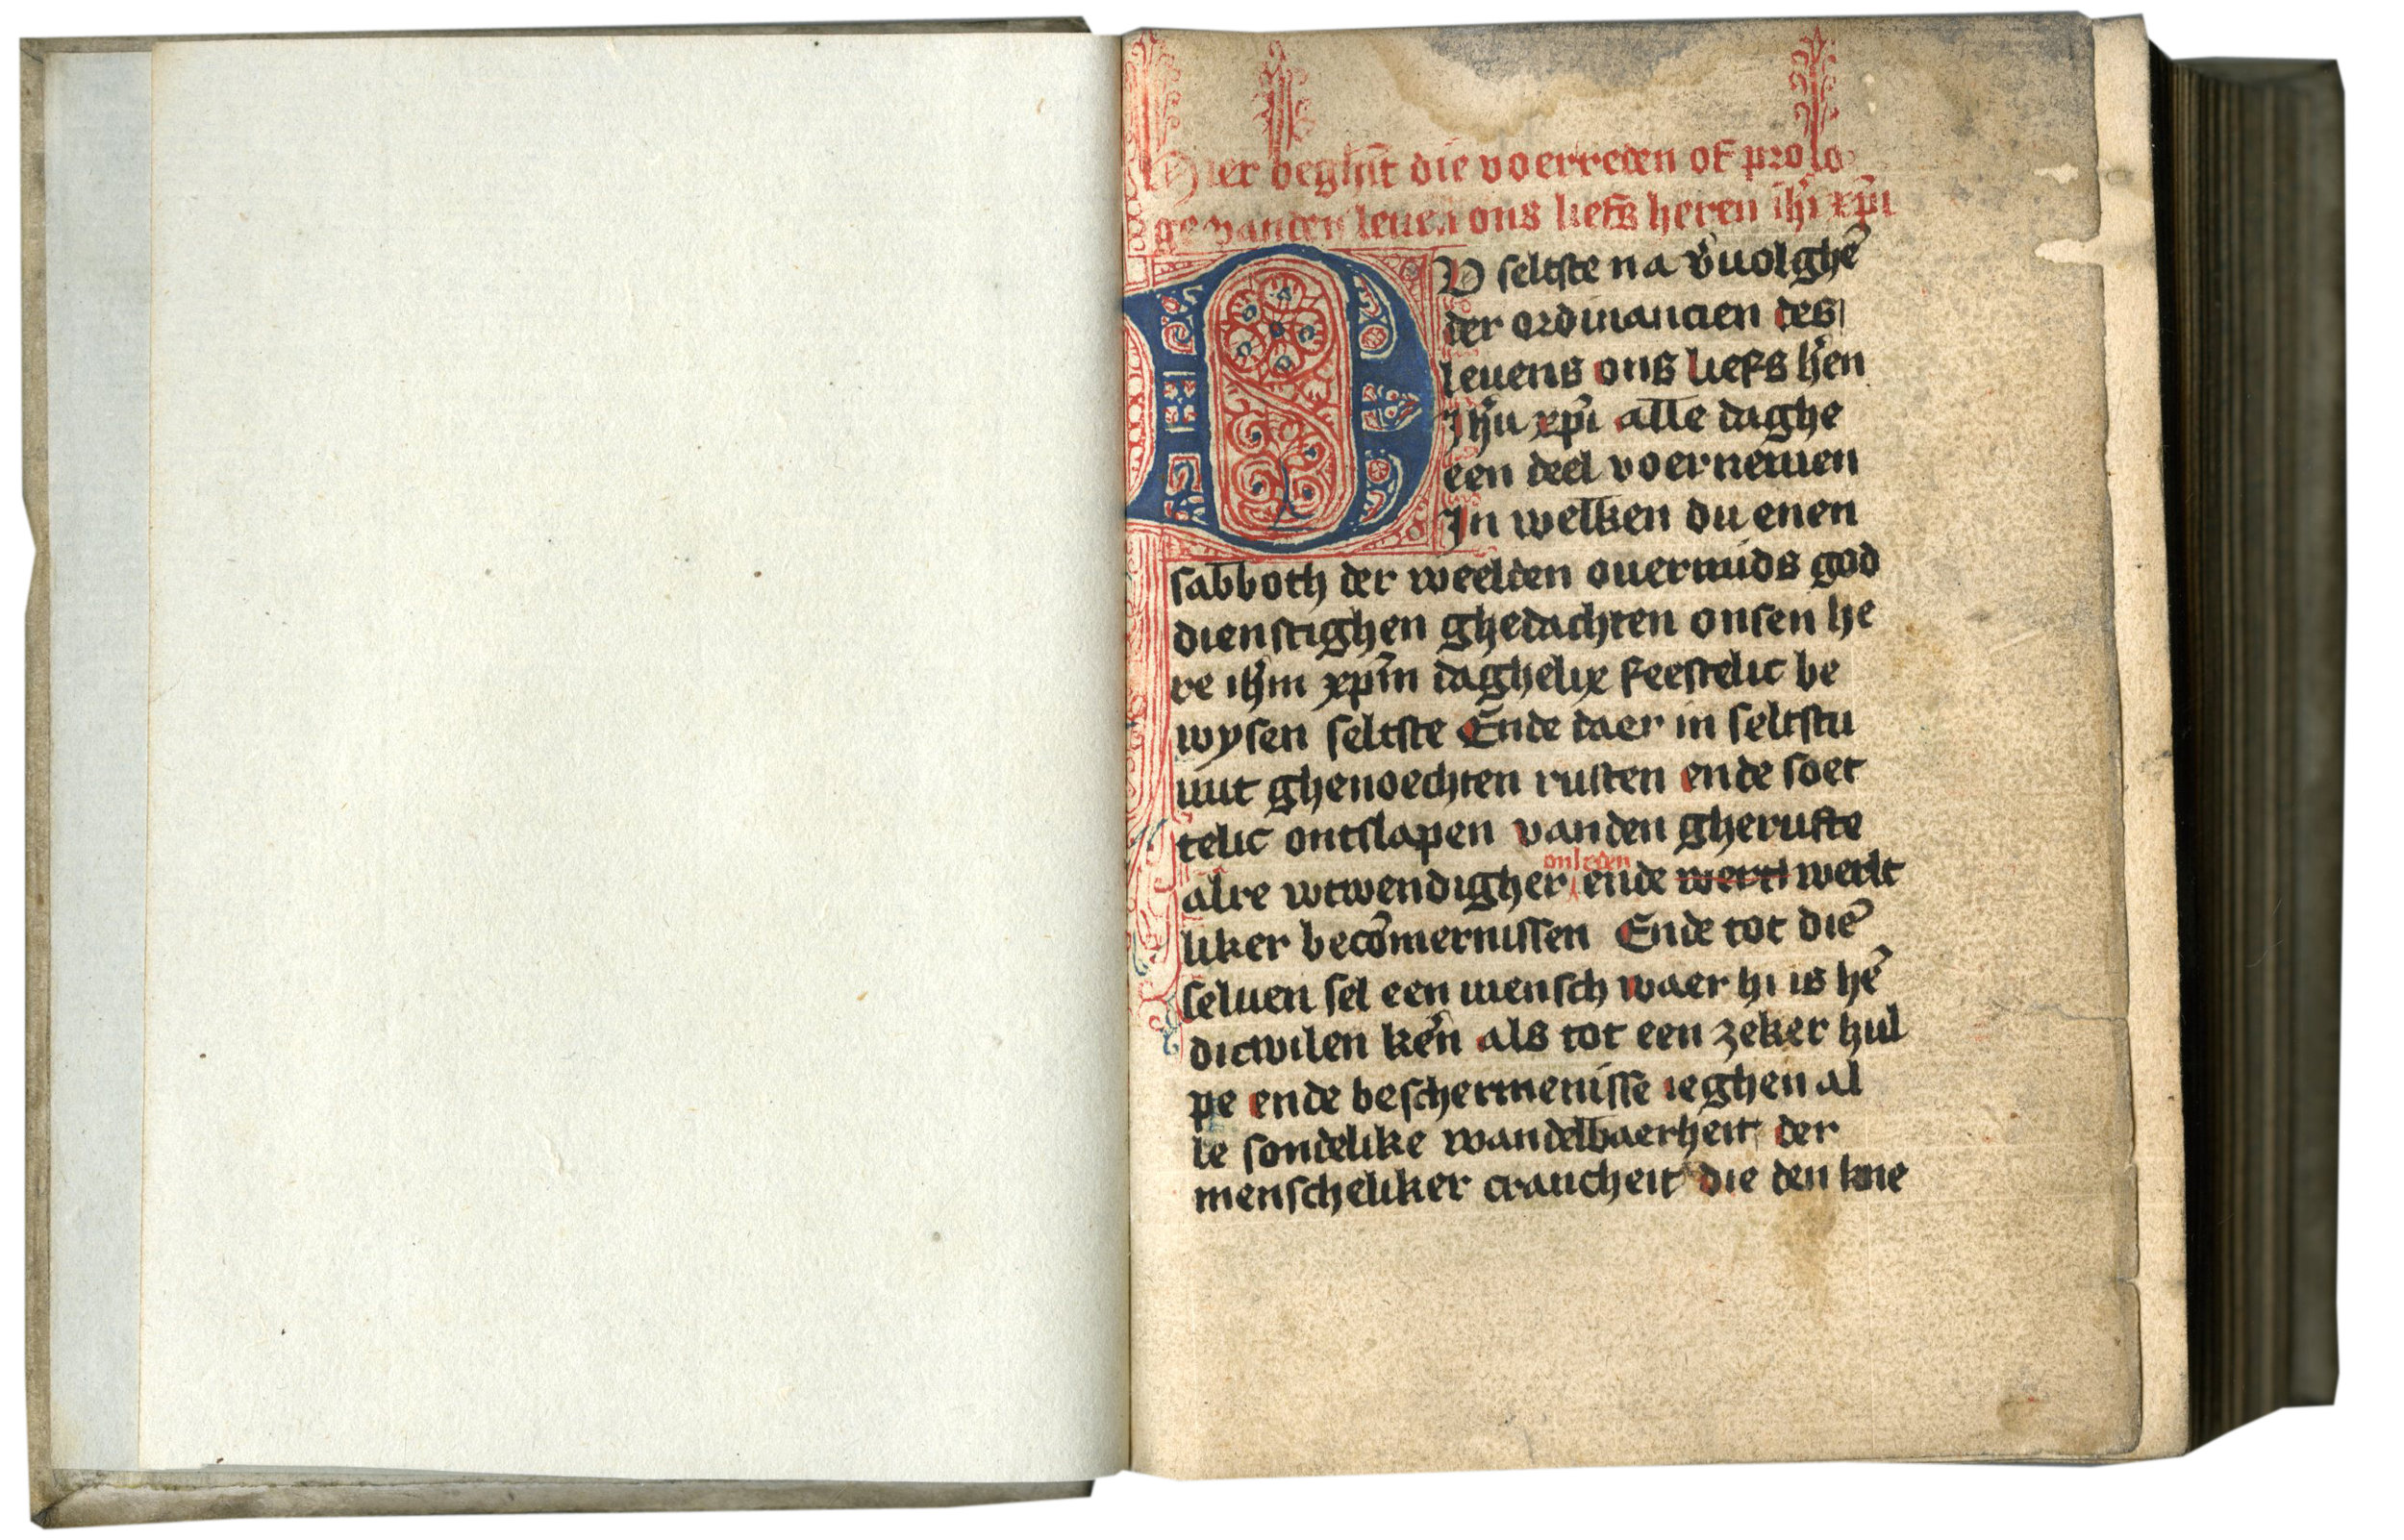 Hier beghīt die voerreden of prolo
ge vanden leuen ons liefs heren ih̄u xp̄i
DV seltste na v̉uolghē
der ordinancien des
leuens ons liefs hēn
Jhū xp̄i alle daghe
een deel voernemen
Jn welken du enen
sabboth der weelden ouermids god
dienstighen ghedachten onsen he
re ih̄m xp̄m daghelix feestelic be
wysen seltste Ende daer in seltstu
mit ghenoechten rusten ende soet
telic ontslapen vanden gheruste
alre wtwendigher onleden ende werel werlt
liker becōmernissen Ende tot diē
seluen sel een mensch waer hi is hē
dicwilen kēn als tot een zeker hul
pe ende beschermenisse ieghen al
le sondelike wandelbaerheit der
menscheliker crancheit die den kne